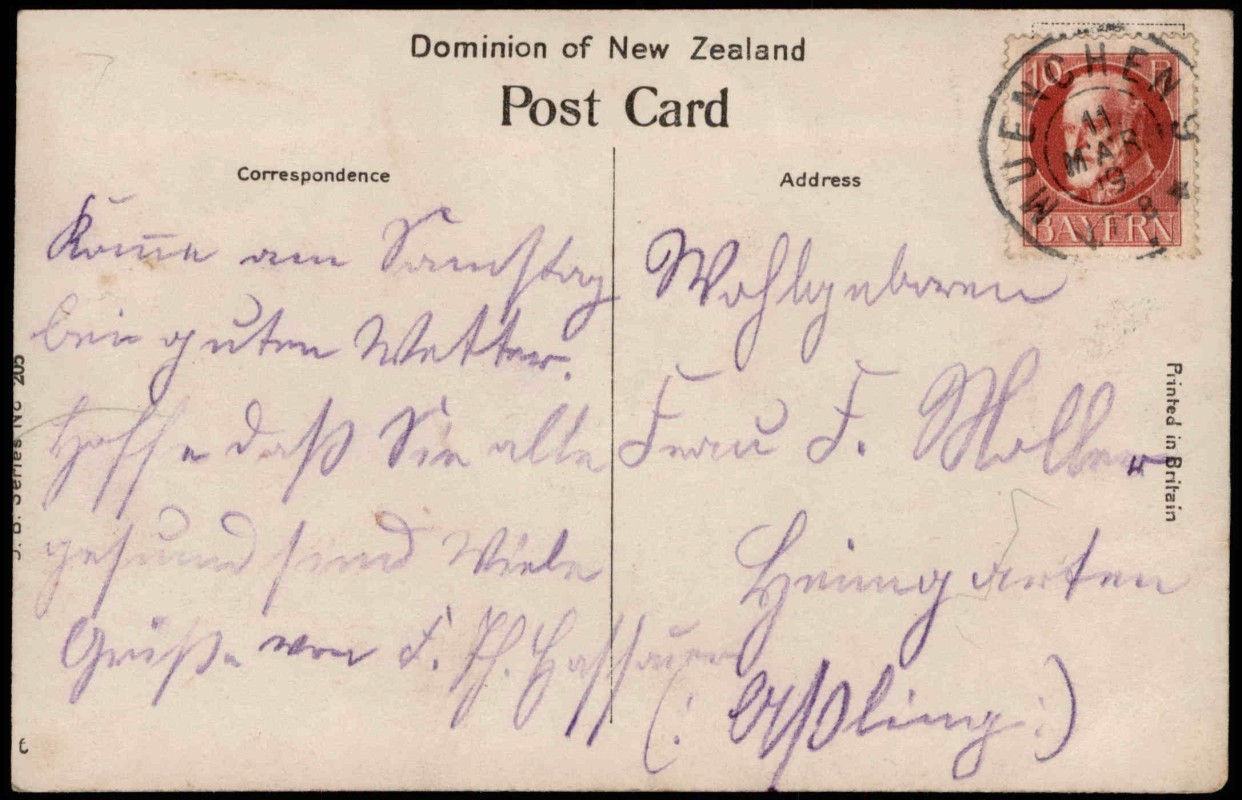 Dominion of New Zealand
Post Card
Correspondence
Address
10 P
BAYERN
MUENCHEN 9
11
MAR
19
Kom̅e am Samstag
bei guten Wetter.
Hoffe daß Sie alle
gesund sind Viele
Grüße von F. Ph. Hassauer
Wohlgeboren
Frau F. Moller
Heimgarten
(: Aßling :)
Printed in Britain
Series No 205